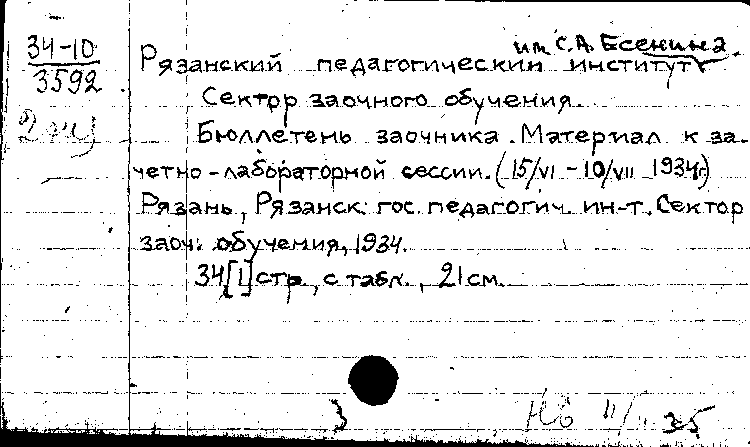 34-10
3592
им. С.А. Есенина.
Рязанский педагогический институт
Сектор заочного обучения.
Бюллетень заочника. Материал к за-
четно-лабораторной сессии. (15/VI - 10/VII 1934г.)
Рязань, Рязанск. гос. педагогич. ин-т. Сектор
заоч. обучения, 1934.
34[1] стр., с табл., 21 см.
3